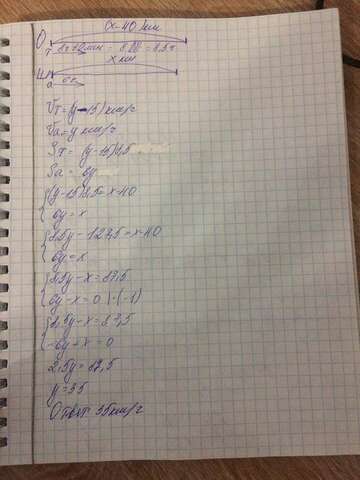 (x-40 км
О
т 8ч30мин = 8 = 8.5ч
x км
а 6ч
Vт=(y-15) км/ч
Vа=y км/ч
Sт= (y-15)8,5
Sа= 6y
{(y-15)8,5=x-40
6y=x
{8,5y-127,5=x-40
6y=x
{8,5y-x=87,5
6y-x=0 |·(-1)
{8,5y-x=87,5
-6y+x=0
2,5y=87,5
y=35
Ответ 35км/ч